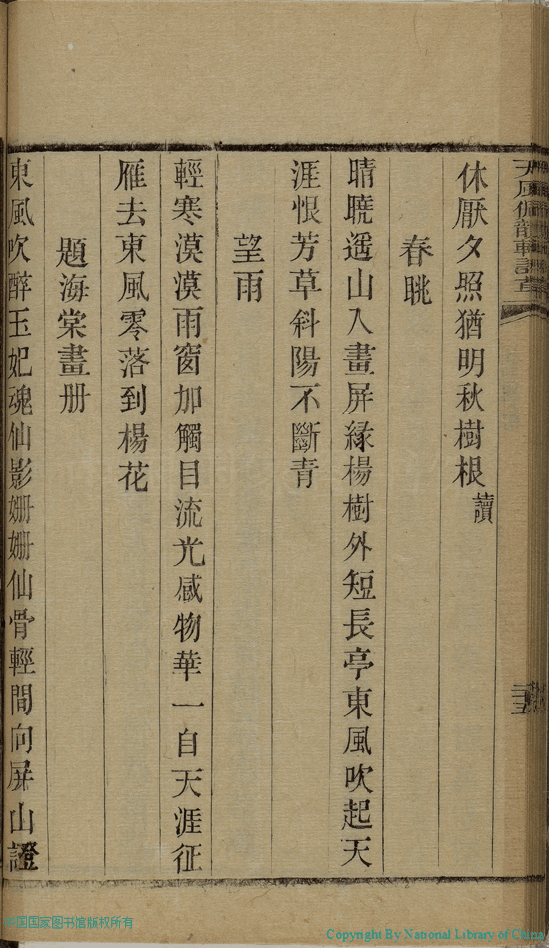 休厭夕照猶明秋樹根讀
春眺
晴曉遥山入畫屏緣楊樹外短長亭東風吹起天
涯恨芳草斜陽不斷青
望雨
輕寒漠漠雨窗加觸目流光感物華一自天涯征
雁去東風零落到楊花
題海棠畫册
東風吹醉玉妃魂仙影姍姍仙骨輕間向屏山證
中国国家图书馆版权所有
Copyright By National Library of China